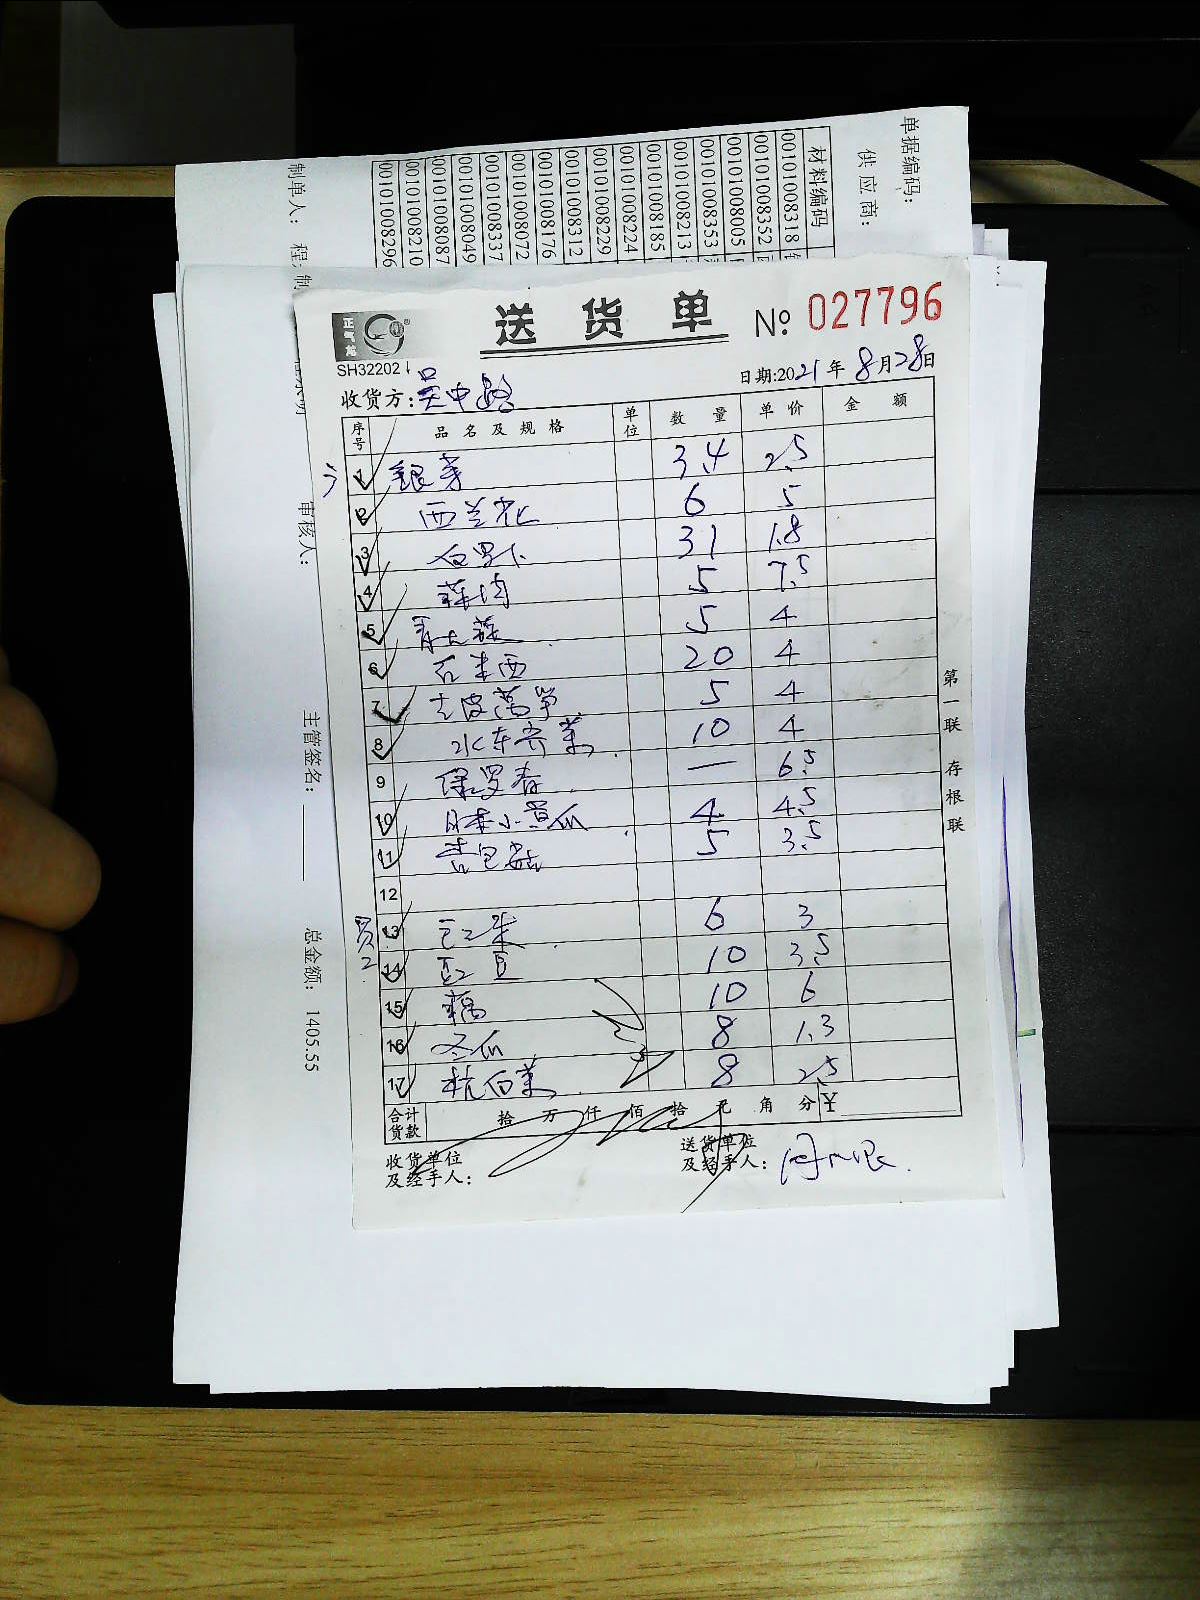 单据编码:
供应商:
材料编码
001010008318
001010008352
001010008005
001010008353
001010008213
001010008185
001010008224
001010008229
001010008312
001010008176
001010008072
001010008337
001010008049
001010008087
001010008210
001010008296
制单人: 程
审核人:
主管签名:
总金额: 1405.55
正气龙
SH32202
送货单
№: 027796
日期:2021年8月28日
收货方:吴中路
序号 品名及规格 单位 数量 单价 金额
1 银芽 3.4 2.5
2 西兰花 6 5
3 白罗卜 31 1.8
4 蒜肉 5 7.5
5 青大蒜 5 4
6 石米西 20 4
7 去皮莴笋 5 4
8 水东芥菜 10 4
9 保罗春 — 6.5
10 日本小黄瓜 4 4.5
11 青包菇 5 3.5
12
员工
13 6 3
14 豇豆 10 3.5
15 藕 10 6
16 冬瓜 8 1.3
17 杭白菜 8 2.5
合计货款 拾 万 仟 佰 拾 元 角 分 ¥
收货单位及经手人:
送货单位及经手人:
第一联 存根联